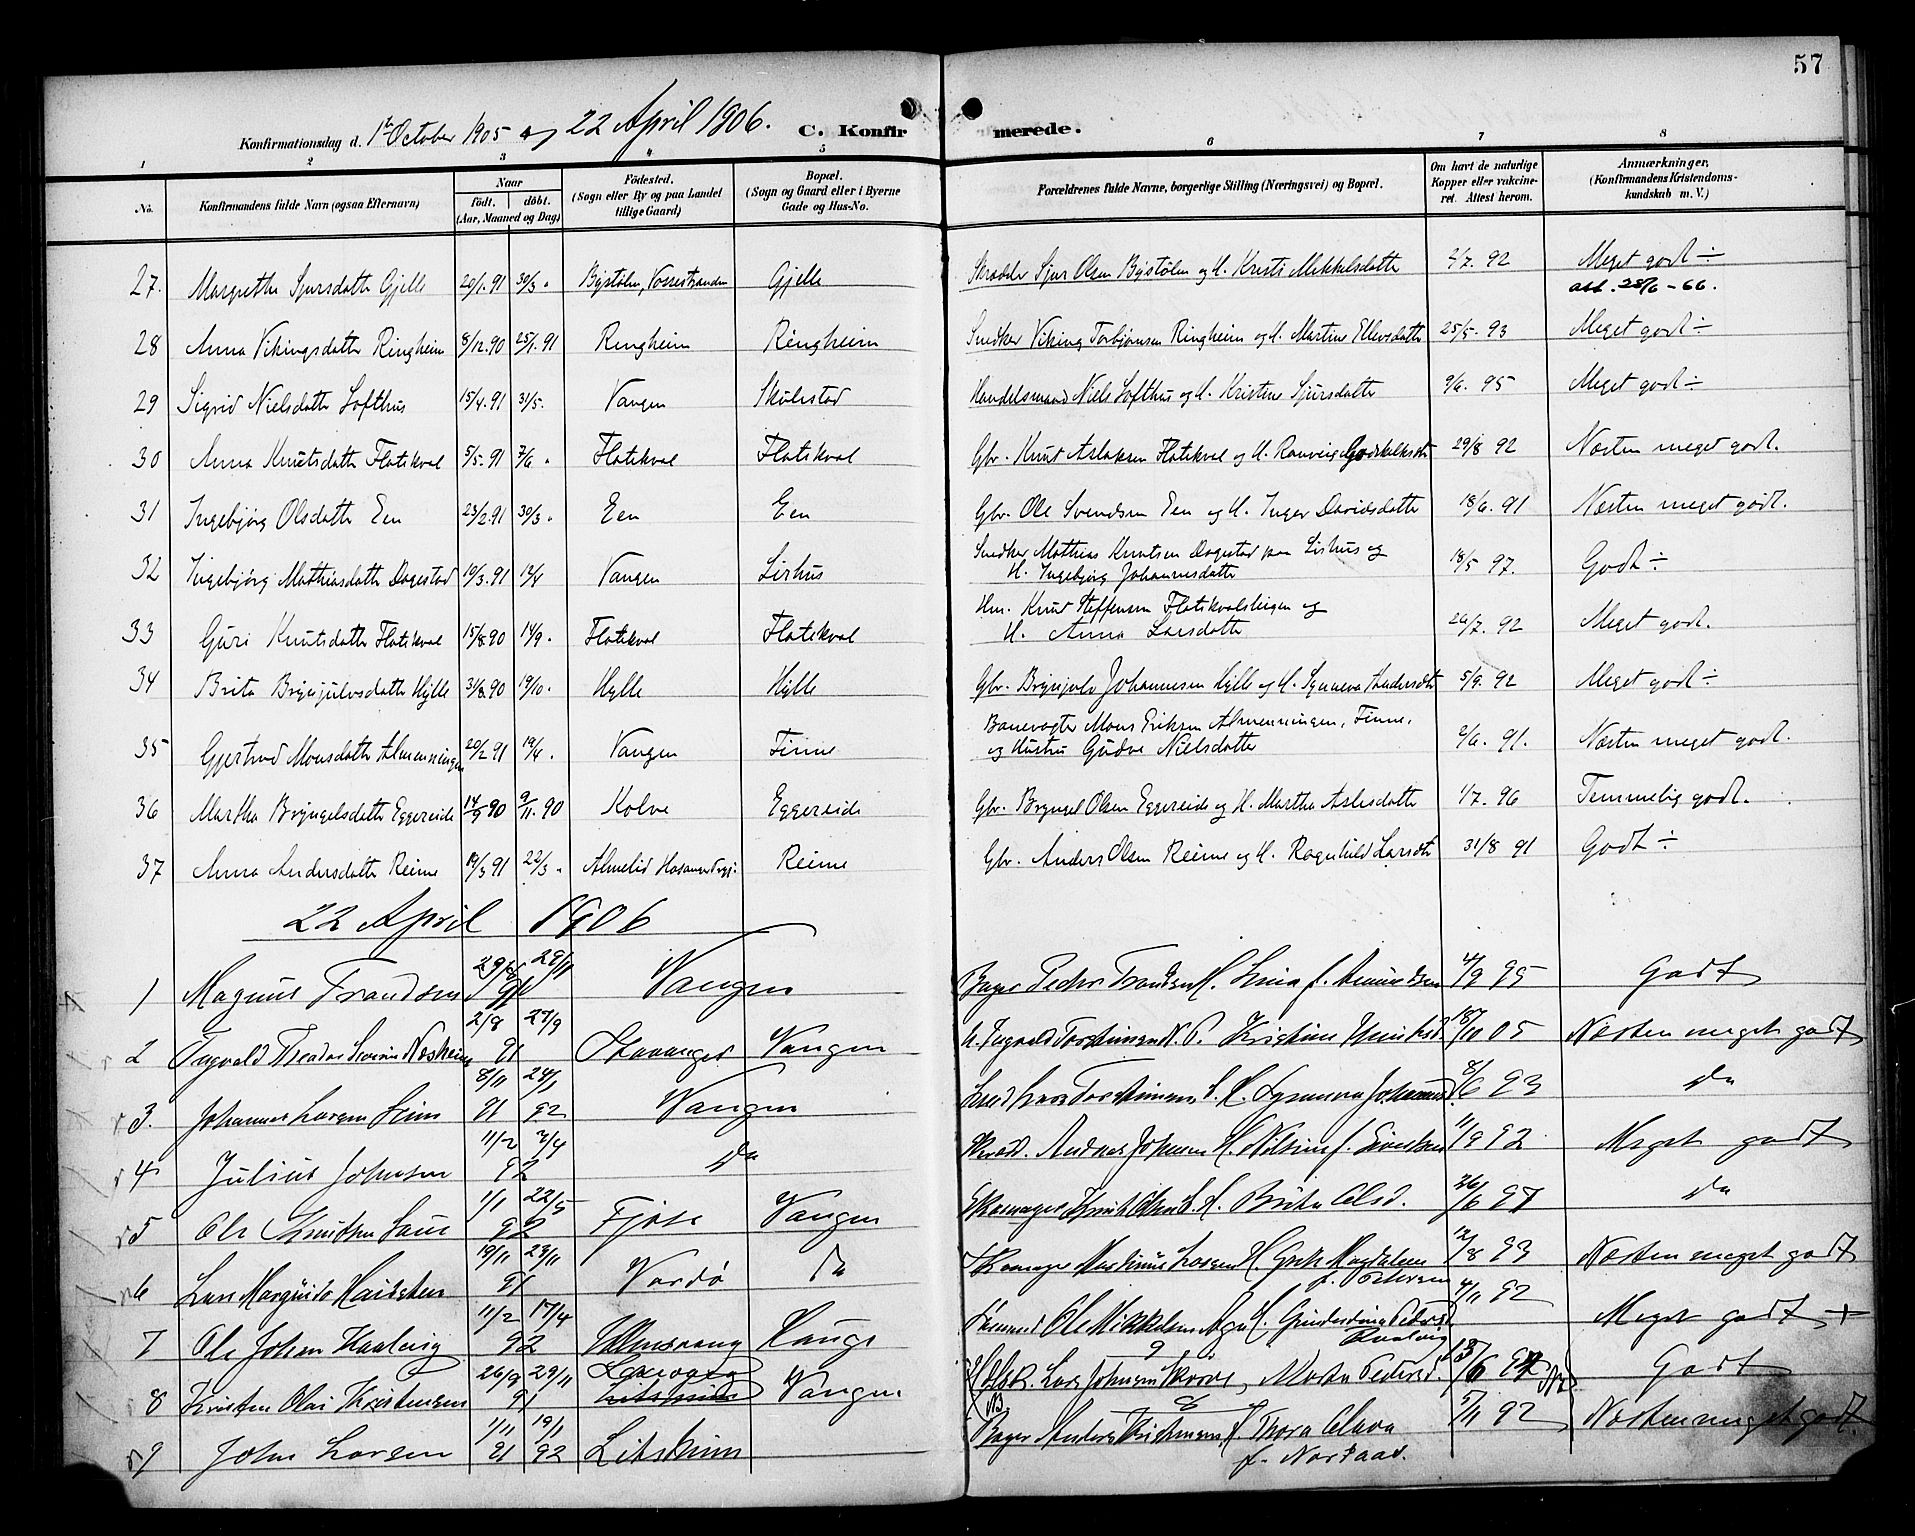 57
Konfirmationsdag d. 1ste October 1905 og 22 April 1906. C. Konfirmerede.
1 2 3 4 5 6 7 8
No. Konfirmandens fulde Navn (ogsaa Efternavn) Naar født. døbt. (Aar, Maaned og Dag) Fødested. (Sogn eller By og paa Landet tillige Gaard) Bopæl. (Sogn og Gaard eller i Byerne Gade og Hus-No.) Forældrenes fulde Navne, borgerlige Stilling (Næringsvei) og Bopæl. Om havt de naturlige Kopper eller vakcineret. Attest herom. Anmærkninger. (Konfirmandens Kristendomskundskab m. V.)
27. Margretha Sjursdatter Gjelle 20/1. 91 30/3 " Bystølen, Vossestranden Gjelle Skrædder Sjur Olsen Bystølen og H. Kristi Mikkelsdatter 2/7. 92 Meget godt ÷
att. 28/6 - 66.
28 Anna Vikingsdatter Ringheim 8/12.90 25/1.91 Ringheim Ringheim Snedker Viking Torbjørnsen Ringheim og H. Martine Ellevsdatter 25/5. 93 Meget godt ÷
29 Sigrid Nielsdatter Lofthus 15/4.91 31/5. Vangen Skulestad Handelsmand Niels Lofthus og H. Kristine Sjursdatter 9/6. 95 Meget godt ÷
30 Anna Knutsdatter Flatekval 5/5.91 7/6 " Flatekval Flatekval Gbr. Knut Aslaksen Flatekval og H. Ranveig 29/8 92 Næsten meget godt.
31 Ingebjørg Olsdatter Een 23/2.91 30/3 " Een Een Gbr. Ole Svendsen Een og H. Inger Davidsdatter 18/6. 91 Næsten meget godt.
32 Ingebjørg Mathiasdatter Dagestad 19/3.91 12/4 Vangen Lirhus Snedker Mathias Knutsen Dagestad paa Lirhus og
H. Ingebjørg Johannesdatter 18/5 97. Godt ÷
33 Guri Knutsdatter Flatekval 15/8.90 14/9. Flatekval Flatekval Hm. Knut Steffensen Flatekvalsteigen og
H. Anna Larsdatter 26/7. 92 Meget godt.
34 Brita Brynjulvsdatter Hylle 31/8.90 19/10. Hylle Hylle Gbr. Brynjulv Johannesen Hylle og H. Synneva Andersdtr 5/9. 92 Meget godt ÷
35 Gjertrud Monsdatter Almenningen 20/2 91 19/4 . Vangen Finne Banevogter Mons Eriksen Almenningen, Finne,
og Hustru Gudve Nielsdatter 2/6. 91. Næsten meget godt.
36 Martha Bryngelsdatter Eggereide 14/9 90 9/11. 90 Kolve Eggereide Gbr. Bryngel Olsen Eggereide og H. Martha Aslesdatter 1/7. 96 Temmelig godt.
37 Anna Andersdatter Reime 19/3 91 22/3 " Almelid Reime Gbr. Anders Olsen Reime og H. Ragnhild Larsdtr 31/8 91 Godt ÷
22 April 1906
1 Magnus Trandsen 91 29/11 Vangen Bager Peder Trandsen H. f. Amundsen 4/9 95 Godt
2 Ingvald Theodor Severin Nesheim 2/8 91 27/9 Stavanger Vangen Ingvald Torstensen N. Kristine 18/10 05 Næsten meget godt
3. Johannes Larsen Seim 8/11 91 24/1 92 Vangen Lars Torstensen S. H. Synneva 8/6 93 Do
4 Julius Johnsen 11/2 92 3/4 Do Skræd. Andreas Johnsen H. Nilsine f. 11/9 92 Meget godt
5 Ole Knutsen Saue 1/1 92 22/5 Fjose Vangen Skomager Knut Olsen S. H. Brita Olsd. 26/6 97 Do
6 Lars Hailsten 19/11 91 23/11 Vardø Do H. Magdalene
f. Petersen 12/8 93 Næsten meget godt
7 Ole Johan Kvalvig 11/2 92 17/4 Hauge Ole Mikkelsen H. Pedersd
Kvalvig 4/11 92 Meget godt +
8 Kristen Olai Kristensen 26/9 91 29/11 Vangen Lars Johnsen Skorve, Marta Pedersd. 13/6 Godt
9 John Larsen 1/11 91 19/1 92 Litskim Bager Anders Kristensen H. Thora Olava
f. Norsaas. 5/11 92 Næsten meget godt.